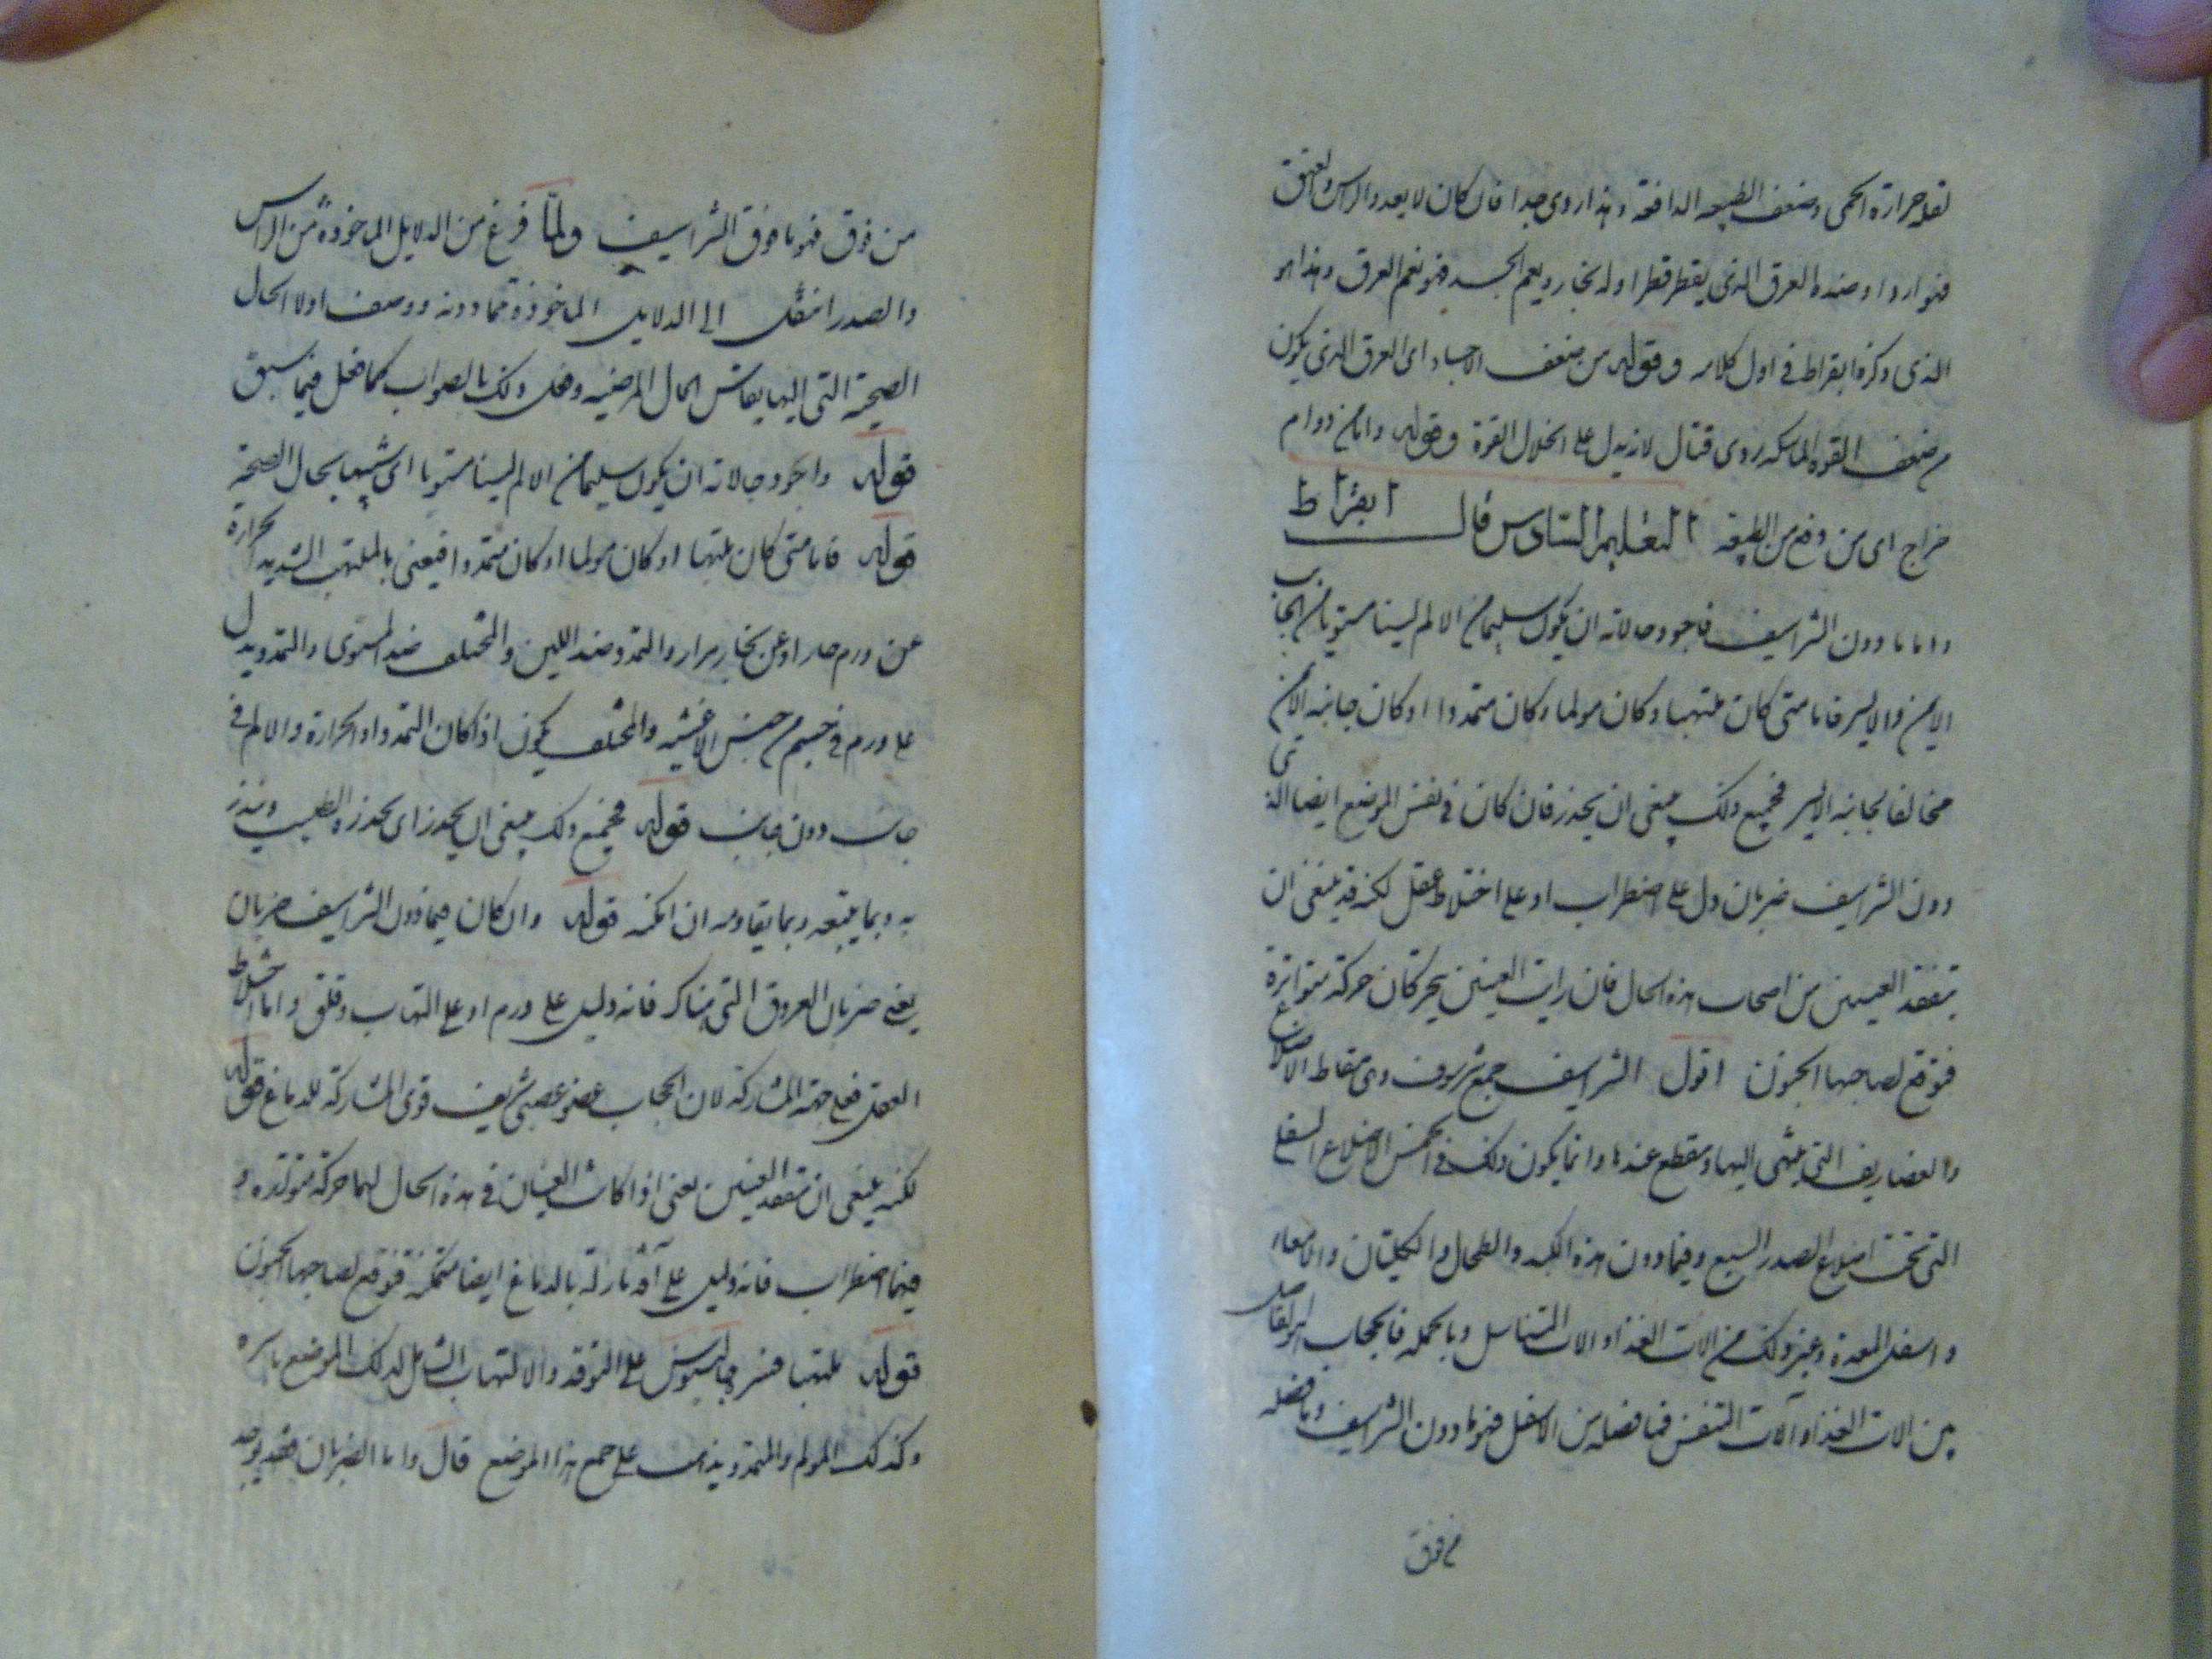 لقلة حرارة الحمى وضعف الطبيعة الدافعة وهذا ردى جدا فان كان لا يعدو الراس والعنق
فهو اردا وضد العرق الذى يقطر قطرا وله بخار ويعم الجسد فهو نعم العرق وهذا هو
الذى ذكره ابقراط فى اول كلامه وقوله من ضعف الاجساد اى العرق الذى يكون
من ضعف القوة الماسكة ردى قتال لانه يدل على انحلال القوة وقوله واما من دوام
خراج اى من دفع من الطبيعة التعليم السادس قال ابقراط
واما ما دون الشراسيف فاجود حالاته ان يكون سليما من الالم لينا مستويا من الجانب
الايمن والايسر فاما متى كان ملتهبا وكان مولما وكان متمددا او كان جانبه الايمن
مخالفا لجانبه الايسر فجميع ذلك ينبغى ان يحذر فان كان فى نفس الموضع ايضا الذى
دون الشراسيف ضربان دل على اضطراب او على اختلاط عقل لكنه قد ينبغى ان
تتفقد العينين من اصحاب هذه الحال فان رايت العينين يتحركان حركة متواترة
فتوقع لصاحبها الجنون اقول الشراسيف جمع شرسوف وهى مقاط الاضلاع
والغضاريف التى ينتهى اليها وينقطع عندها وانما يكون ذلك فى الخمس الاضلاع السفلى
التى تحت اضلاع الصدر السبع وفيما دون هذه الكبد والطحال والكليتان والامعاء
واسفل المعدة وغير ذلك من الات الغذاء والات التناسل وبالجملة فالحجاب هو الفاصل
بين الات الغذاء وآلات التنفس فما فصله من الاسفل فهو ما دون الشراسيف وما فصله
من فوق
من فوق فهو ما فوق الشراسيف ولما فرغ من الدلايل الماخوذة من الراس
والصدر انتقل الى الدلايل الماخوذة مما دونه ووصف اولا الحال
الصحية التى اليها يقاس الحال المرضية وفعل ذلك بالصواب كما فعل فيما سبق
قوله واجود حالاته ان يكون سليما من الالم لينا مستويا اى شبيها بحال الصحة
قوله فاما متى كان ملتهبا او كان مولما او كان متمددا فيعنى بالملتهب الشديد الحرارة
عن ورم حار او عن بخار مرار والتمدد ضد اللين والمختلف ضد المستوى والتمدد يدل
على ورم فى جسم من جنس الاغشية والمختلف يكون اذا كان التمدد او الحرارة والالم فى
جانب دون جانب قوله فجميع ذلك ينبغى ان يحذر اى يحذره الطبيب وينذر
به وبما يتبعه وبما يقاومه ان امكنه قوله وان كان فيما دون الشراسيف ضربان
يعنى ضربان العروق التى هناك فانه دليل على ورم او على التهاب وقلق واما اختلاط
العقل فعلى جهة المشاركة لان الحجاب عضو عصبى شريف قوى المشاركة للدماغ قوله
لكنه ينبغى ان تتفقد العينين يعنى اذا كانت العينان فى هذه الحال لهما حركة متواترة و
فيهما اضطراب فانه دليل على آفة نازلة بالدماغ ايضا متمكنة فتوقع لصاحبها الجنون
قوله ملتهبا فسره جالينوس على التوقد والالتهاب الشامل لذلك الموضع باسره
وكذلك المولم والمتمدد يذهب على جميع هذا الموضع قال واما الضربان فقد يوجد